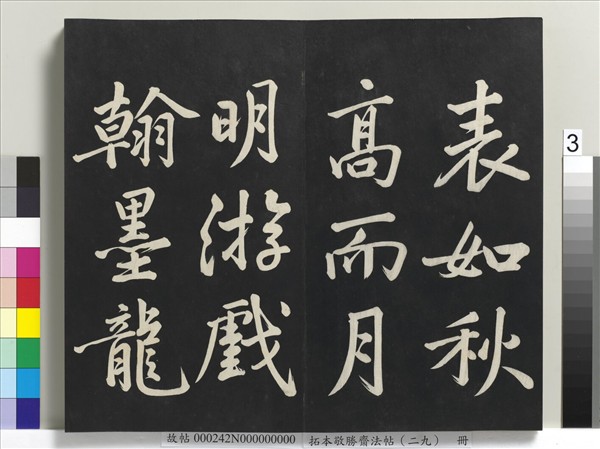 表如秋
高而月
明游戲
翰墨龍
3
故帖000242N000000000 拓本敬勝齋法帖(二九) 冊